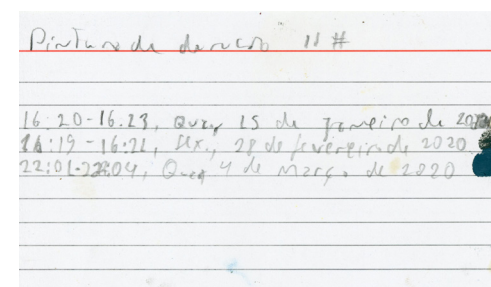 Pintura de derução 11 #
16:20-16:23, Qua., 15 de janeiro de 2020
16:19-16:21, Sex., 28 de fevereiro de 2020
22:01-22:04, Qua, 4 de março de 2020